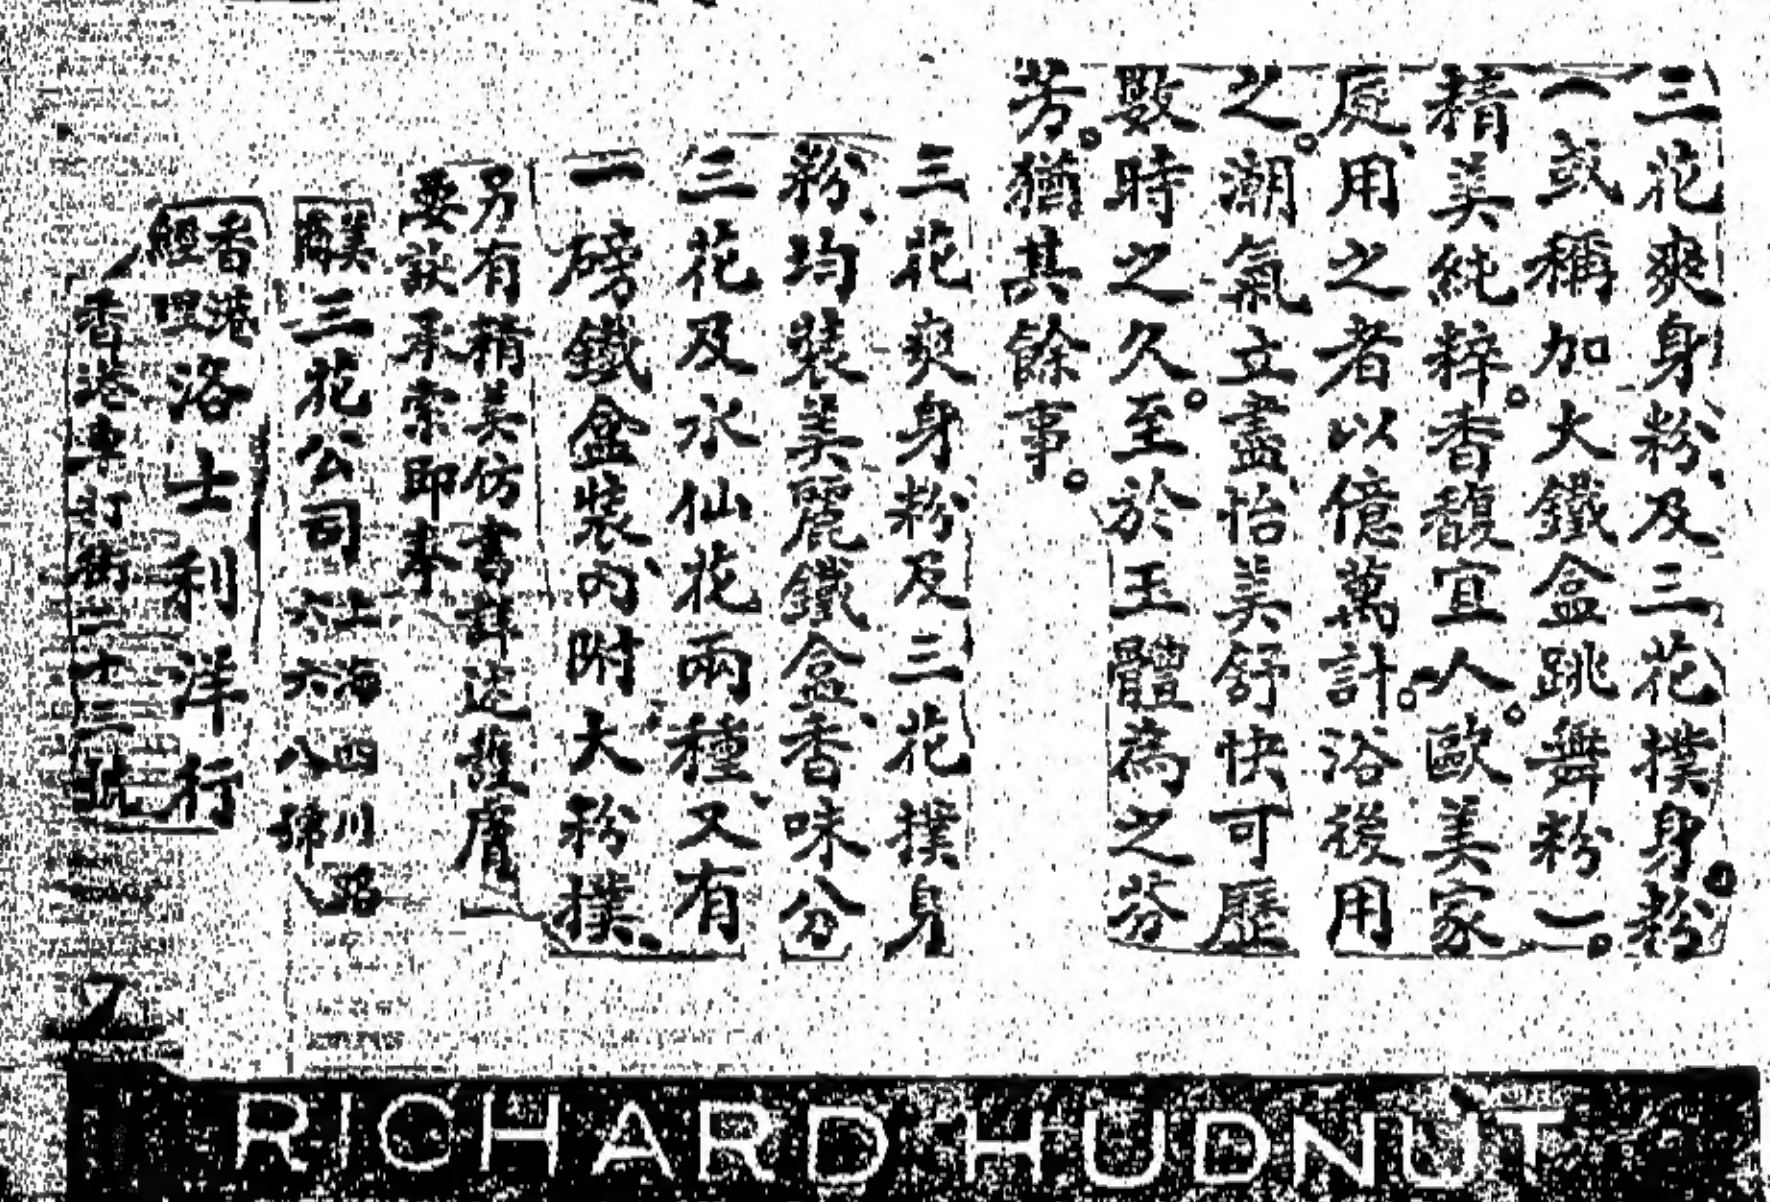 三花爽身粉、及三花撲身粉。
(或稱加大鐵盒跳舞粉)。
精美純粹。香馥宜人。歐美家
處、用之者以億萬計。浴後用
之。潮氣立盡怡美舒快可歷
數時之久。至於玉體為之芬
芳。猶其餘事。
三花爽身粉及三花撲身
粉、均裝美麗鐵盒、香味分
三花及水仙花兩種、又有
一磅鐵盒裝、內附大粉撲、
另有精美仿書詳述護膚
要訣承索即奉
美商三花公司
上海四川路
六六八號
香港經理洛士利洋行
香港專打街二十三號
RICHARD HUDNUT